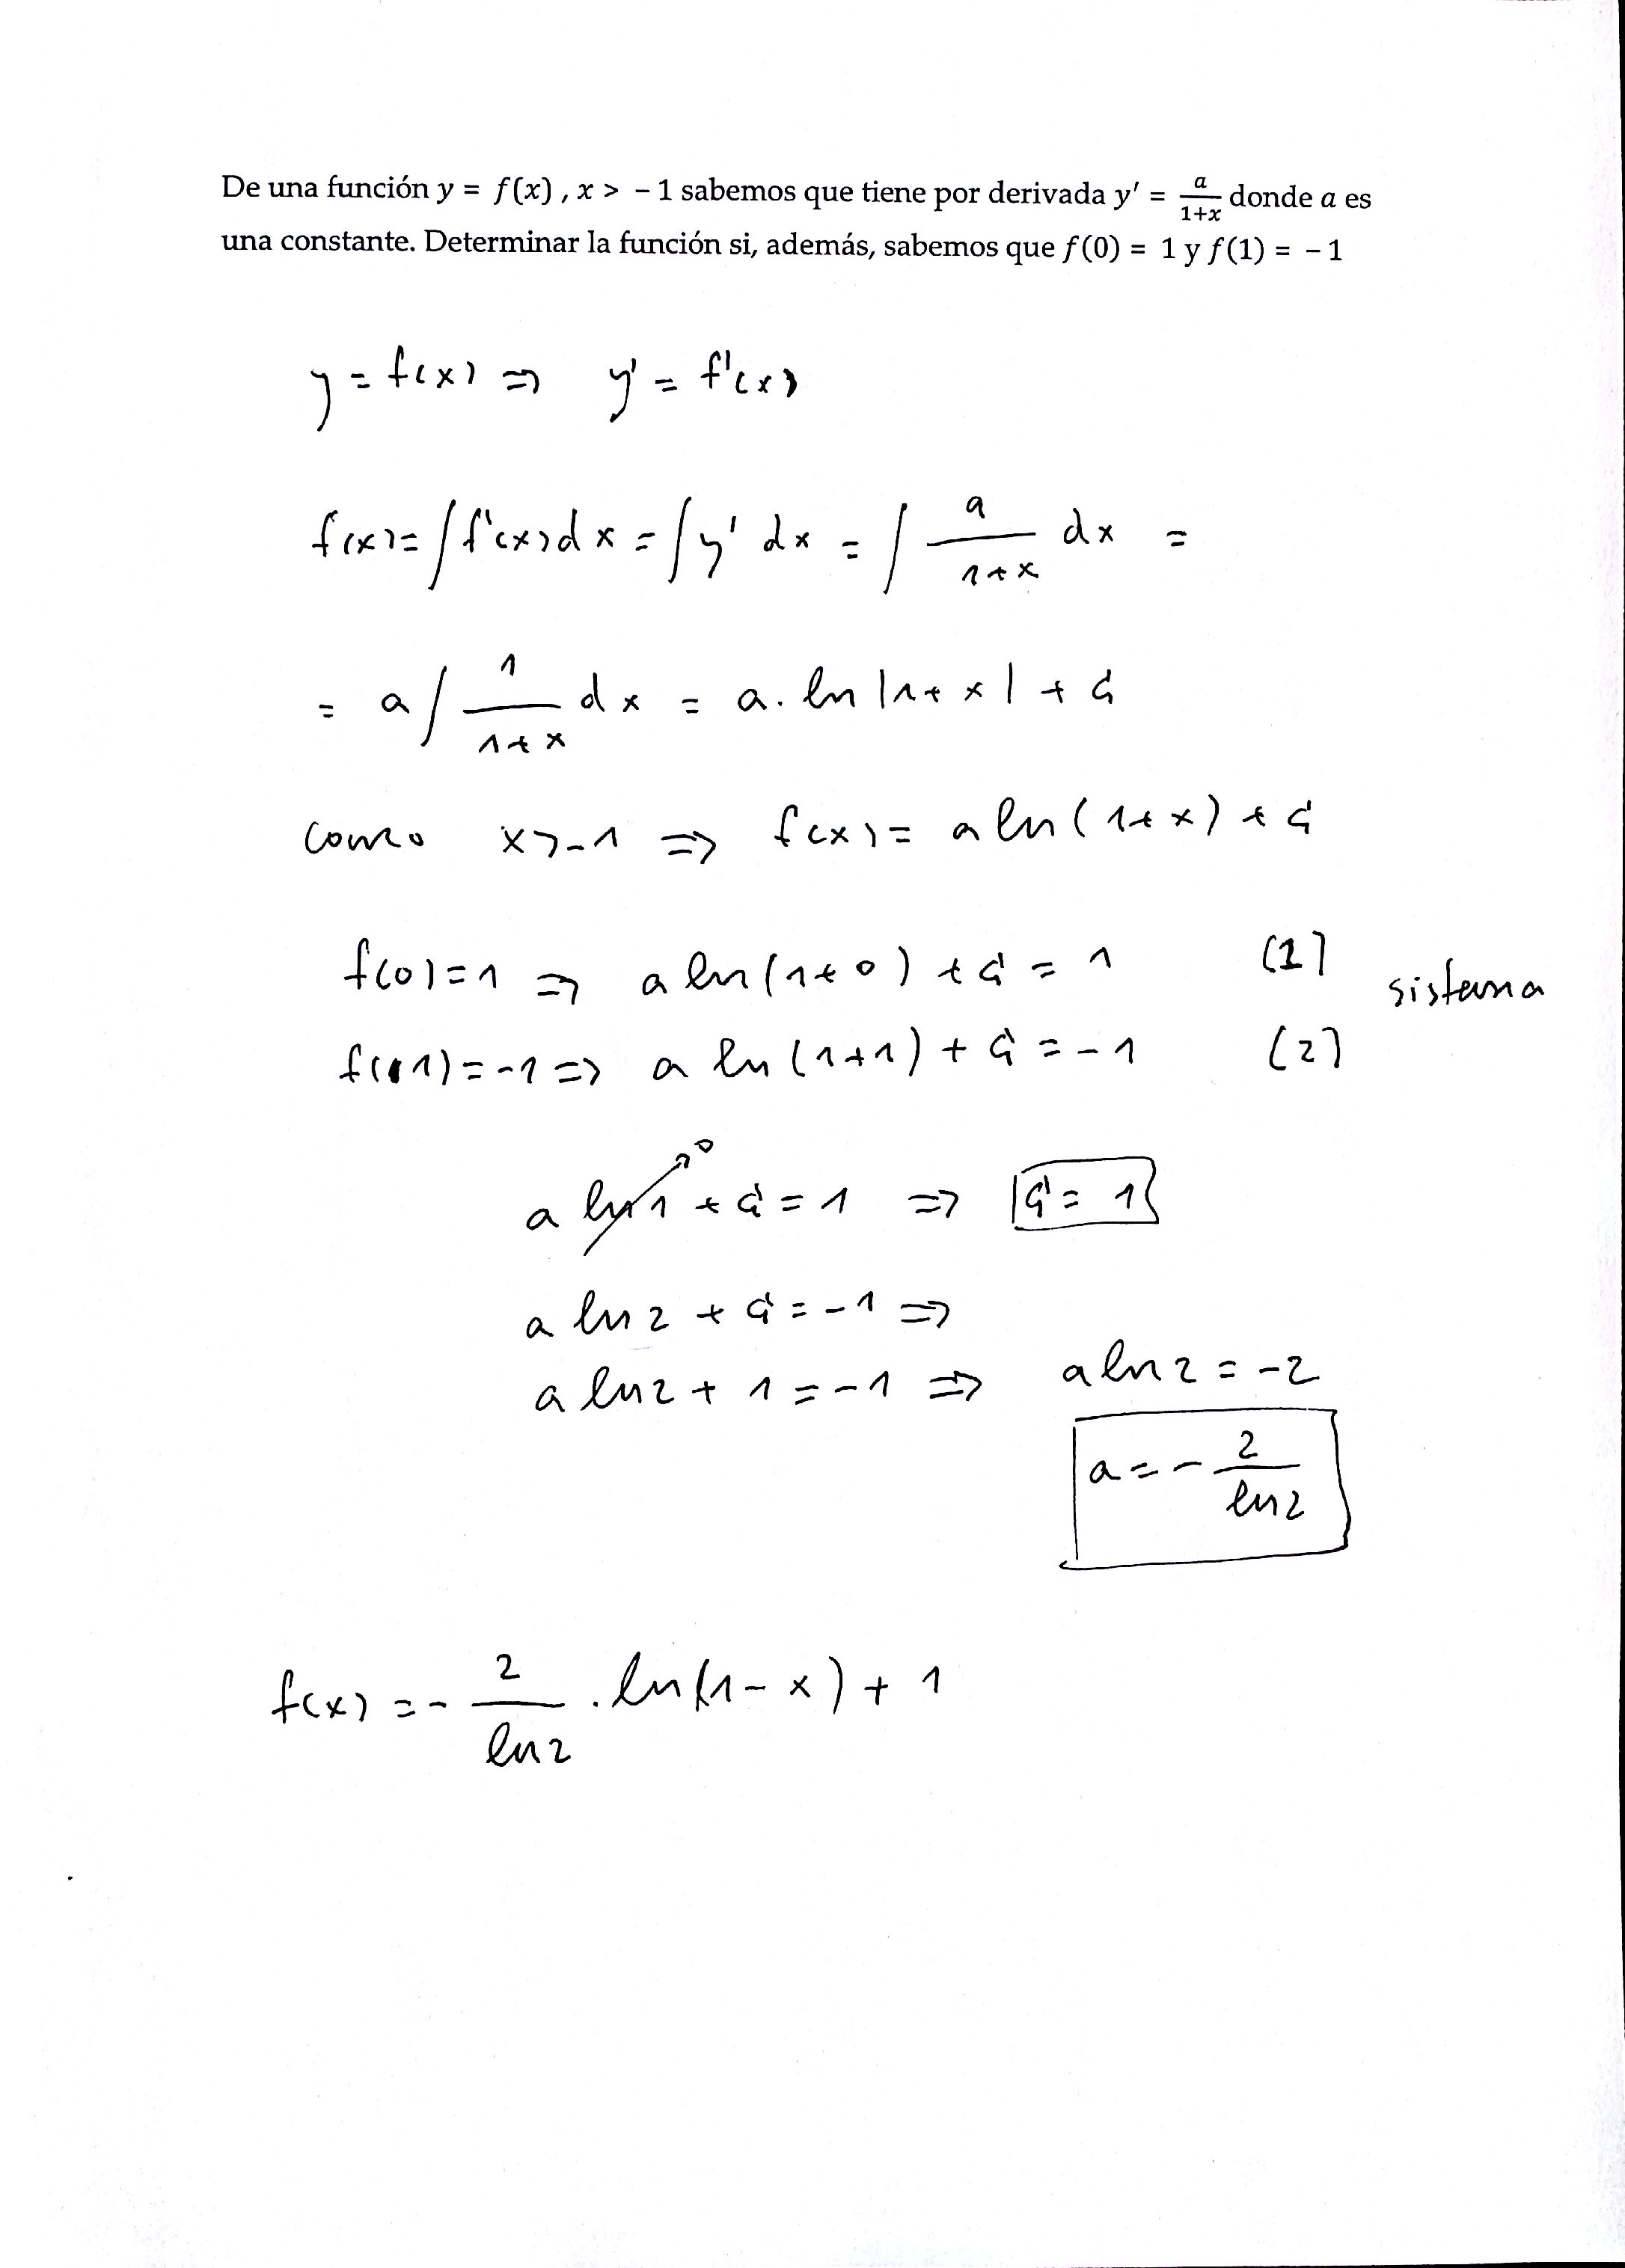 De una función y = f(x) , x > − 1 sabemos que tiene por derivada y′ = a/(1+x) donde a es
una constante. Determinar la función si, además, sabemos que f(0) = 1 y f(1) = − 1
y = f(x) ⇒ y' = f'(x)
f(x) = ∫ f'(x) dx = ∫ y' dx = ∫ a/(1+x) dx =
= a ∫ 1/(1+x) dx = a. ln |1+x| + C
como x > -1 ⇒ f(x) = a ln (1+x) + C
f(0) = 1 ⇒ a ln (1+0) + C = 1 (1)
sistema
f(1) = -1 ⇒ a ln (1+1) + C = -1 (2)
a ln 1 ↗ 0 + C = 1 ⇒ C = 1
a ln 2 + C = -1 ⇒
a ln 2 + 1 = -1 ⇒ a ln 2 = -2
a = - 2/ln 2
f(x) = - 2/ln 2 . ln (1-x) + 1